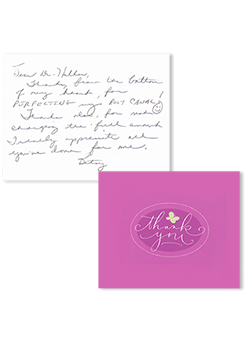 Dear Dr. Hiller,
Thanks from the bottom
of my heart, for
PERFECTING my ROOT CANAL!
Thanks also, for not
charging the full amount
I really appreciate all
you've done for me.
Betsy
thank
you